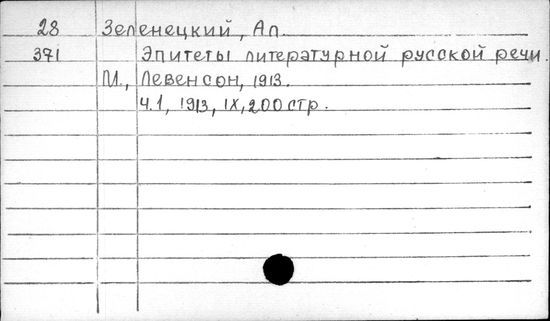 28 Зеленецкий, Ал.
371 Эпитеты литературной русской речи.
М., Левенсон, 1913.
Ч.1, 1913, IX, 200 стр.